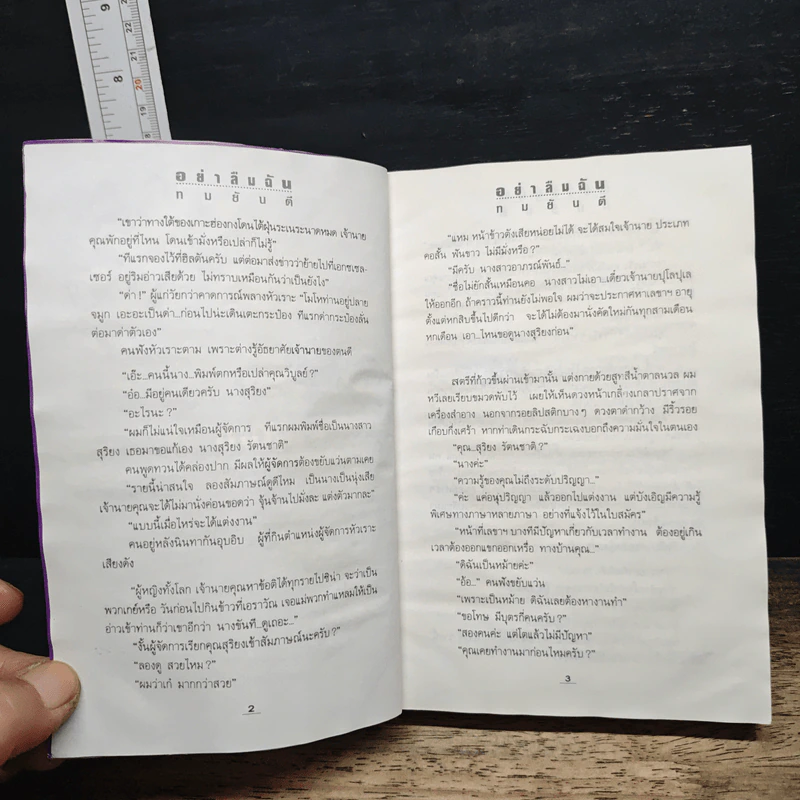 9
8
22
21
20
19
8
อย่าลืมฉัน
ทมยันตี
“เขาว่าทางใต้ของเกาะฮ่องกงโดนไต้ฝุ่นระเนระนาดหมด เจ้านาย
คุณพักอยู่ที่ไหน โดนเข้ามั่งหรือเปล่าก็ไม่รู้”
“ทีแรกจองไว้ที่ฮิลตันครับ แต่ต่อมาส่งข่าวว่าย้ายไปที่เอกซเซล-
เซอร์ อยู่ริมอ่าวเสียด้วย ไม่ทราบเหมือนกันว่าเป็นยังไง”
“ด่า!” ผู้แก่วัยกว่าคาดการณ์พลางหัวเราะ “โมโหท่านอยู่ปลาย
จมูก เอะอะเป็นด่า...ก่อนไปน่ะเดินเตะกระป๋อง ทีแรกด่ากระป๋องลั่น
ต่อมาด่าตัวเอง”
คนฟังหัวเราะตาม เพราะต่างรู้อัธยาศัยเจ้านายของตนดี
“เอ๊ะ...คนนี้นาง...พิมพ์ตกหรือเปล่าคุณวิบูลย์?”
“อ๋อ...มีอยู่คนเดียวครับ นางสุริยง”
“อะไรนะ?”
“ผมก็ไม่แน่ใจเหมือนผู้จัดการ ทีแรกผมพิมพ์ชื่อเป็นนางสาว
สุริยง เธอมาขอแก้เอง นางสุริยง รัตนชาติ”
คนพูดทวนได้คล่องปาก มีผลให้ผู้จัดการต้องขยับแว่นตามเคย
“รายนี้น่าสนใจ ลองสัมภาษณ์ดูดีไหม เป็นนางเป็นนุ่งเสีย
เจ้านายคุณจะได้ไม่มานั่งค่อนขอดว่า จุ้นจ้านไปมั่งละ แต่งตัวมากละ”
“แบบนี้เมื่อไหร่จะได้แต่งงาน”
คนอยู่หลังนินทากันอุบอิบ ผู้ที่กินตำแหน่งผู้จัดการหัวเราะ
เสียงดัง
“ผู้หญิงทั้งโลก เจ้านายคุณหาข้อติได้ทุกรายไปซิน่า จะว่าเป็น
พวกเกย์หรือ วันก่อนไปกินข้าวที่เอราวัณ เจอแม่พวกทำแหลมให้เป็น
อ่าวเข้าท่านก็ว่าเขาอีกว่า นางขันที...ดูเถอะ...”
“งั้นผู้จัดการเรียกคุณสุริยงเข้าสัมภาษณ์นะครับ?”
“ลองดู สวยไหม?”
“ผมว่าเก๋ มากกว่าสวย”
2
อย่าลืมฉัน
ทมยันตี
“แหม หน้าข้าวตังเสียหน่อยไม่ได้ จะได้สมใจเจ้านาย ประเภท
คอสั้น ฟันขาว ไม่มีมั่งหรือ?”
“มีครับ นางสาวอาภรณ์พันธ์...”
“ชื่อไม่ยักสั้นเหมือนคอ นางสาวไม่เอา...เดี๋ยวเจ้านายปุโลปุเล
ให้ออกอีก ถ้าคราวนี้ท่านยังไม่พอใจ ผมว่าจะประกาศหาเลขาฯ อายุ
ตั้งแต่หกสิบขึ้นไปดีกว่า จะได้ไม่ต้องมานั่งคัดใหม่กันทุกสามเดือน
หกเดือน เอา...ไหนขอดูนางสุริยงก่อน”
สตรีที่ก้าวขึ้นผ่านเข้ามานั้น แต่งกายด้วยสูทสีน้ำตาลนวล ผม
หวีเลยเรียบขมวดพับไว้ เผยให้เห็นดวงหน้าเกลี้ยงเกลาปราศจาก
เครื่องสำอาง นอกจากรอยลิปสติกบางๆ ดวงตาดำกว้าง มีริ้วรอย
เกือบกึ่งเศร้า หากท่าเดินกระฉับกระเฉงบอกถึงความมั่นใจในตนเอง
“คุณ...สุริยง รัตนชาติ?”
“นางค่ะ”
“ความรู้ของคุณไม่ถึงระดับปริญญา...”
“ค่ะ แค่อนุปริญญา แล้วออกไปแต่งงาน แต่บังเอิญมีความรู้
พิเศษทางภาษาหลายภาษา อย่างที่แจ้งไว้ในใบสมัคร”
“หน้าที่เลขาฯ บางทีมีปัญหาเกี่ยวกับเวลาทำงาน ต้องอยู่เกิน
เวลาต้องออกแขกออกเหรื่อ ทางบ้านคุณ...”
“ดิฉันเป็นหม้ายค่ะ”
“อ้อ...” คนฟังขยับแว่น
“เพราะเป็นหม้าย ดิฉันเลยต้องหางานทำ”
“ขอโทษ มีบุตรกี่คนครับ?”
“สองคนค่ะ แต่โตแล้วไม่มีปัญหา”
“คุณเคยทำงานมาก่อนไหมครับ?”
3